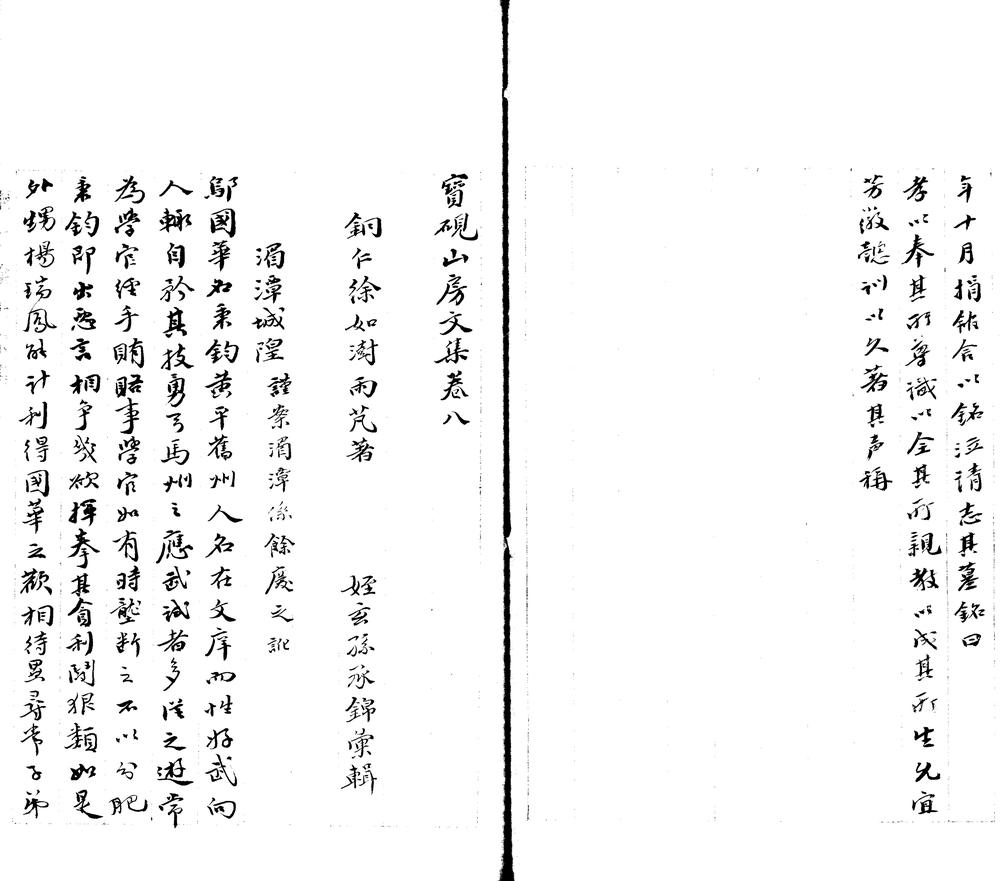 年十月捐館合以銘泣請志其墓銘曰
孝以奉其所尊誠以全其所親教以成其所生允宜
芳徽懿訓以久著其声稱
寶硯山房文集卷八
銅仁徐如澍雨芃著 姪玄孫承錦彙輯
湄潭城隍 謹案湄漳係餘慶之訛
鄔國華名秉鈞黃平舊州人名在文庠而性好武向
人輙自矜其技勇弓馬州之應武試者多從之遊常
為學官經手賄賂事學官如有時壟断之不以分肥
秉鈞即出惡言相争幾欲揮拳其貪利鬪狠類如是
外甥楊瑞鳳能计利得國華之歡相待異尋常子弟